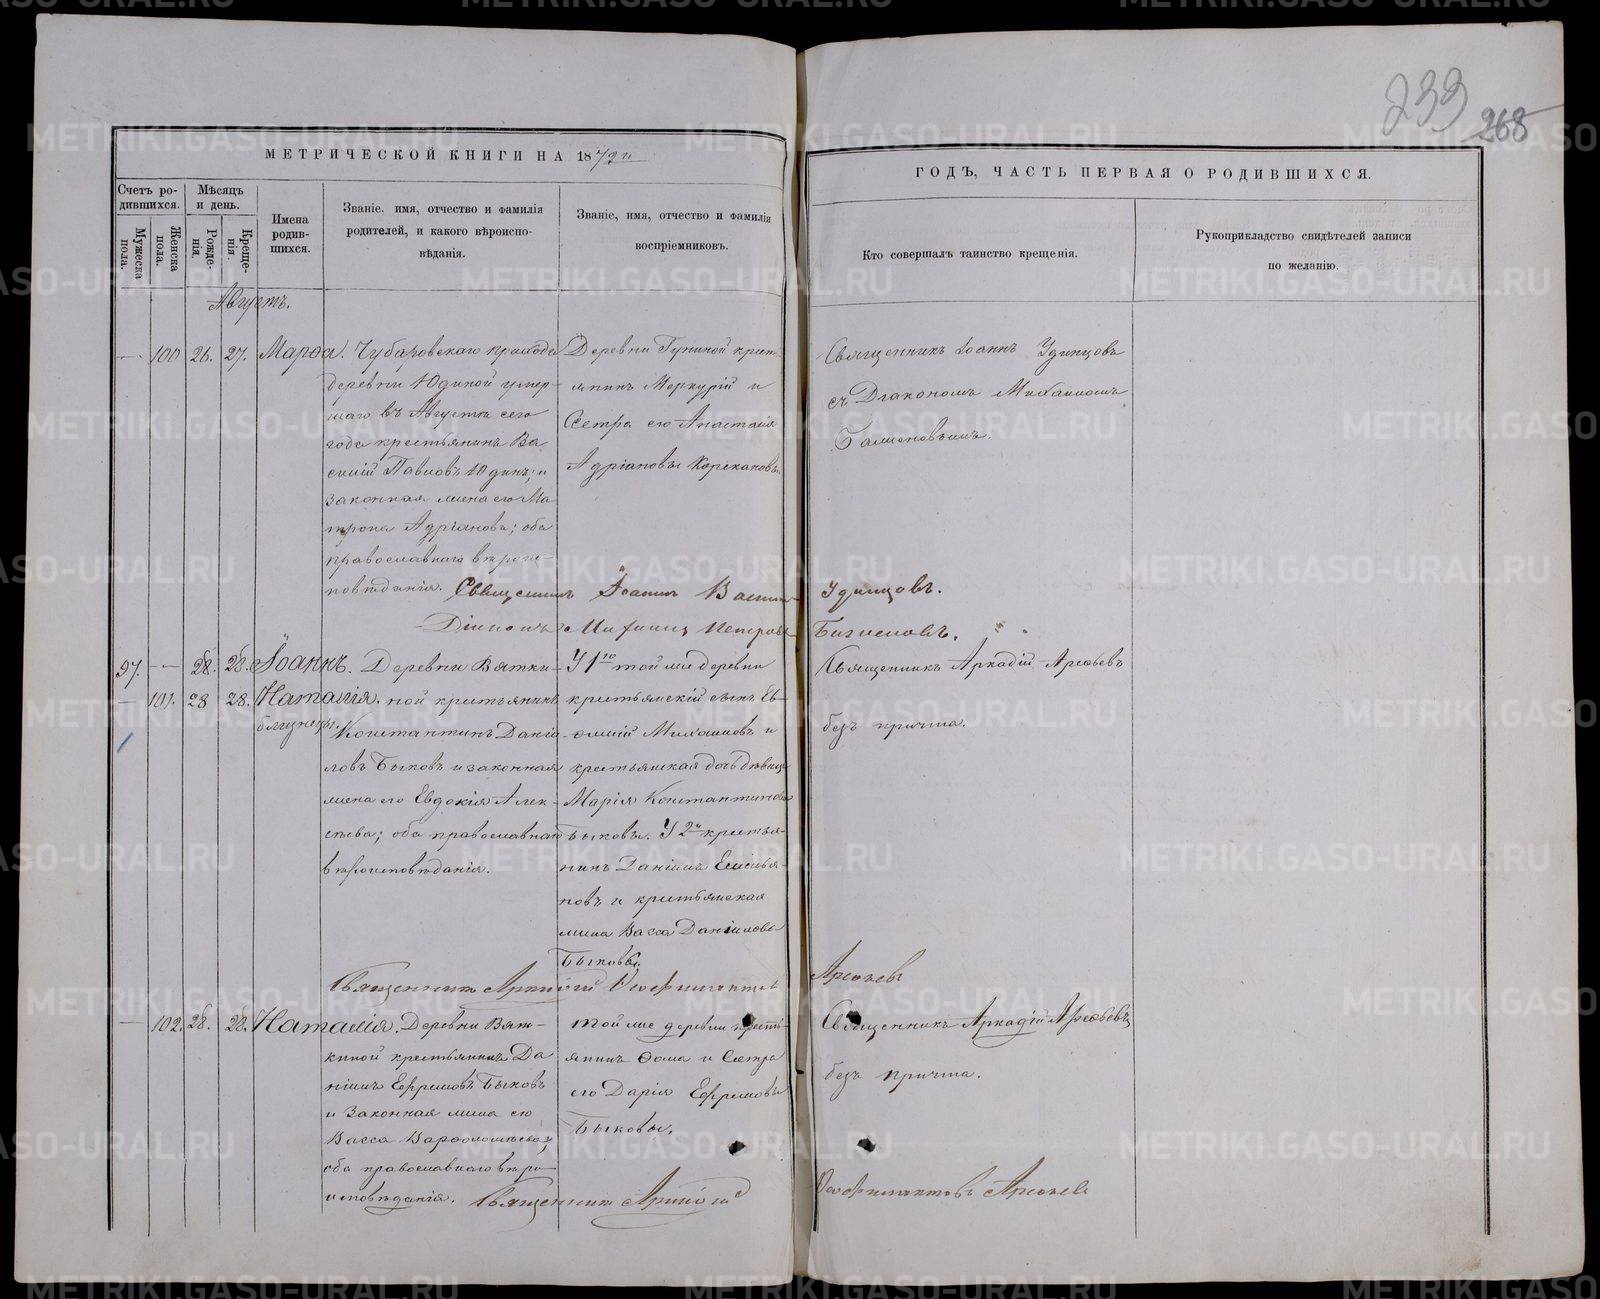 239
268
МЕТРИЧЕСКОЙ КНИГИ НА 1872й
ГОДЪ, ЧАСТЬ ПЕРВАЯ О РОДИВШИХСЯ.
Счетъ ро-
дившихся.
Мужеска пола.
Женска пола.
Мѣсяцъ
и день.
Рожде-
нія.
Креще-
нія.
Имена
родив-
шихся.
Званіе, имя, отчество и фамилія
родителей, и какого вѣроиспо-
вѣданія.
Званіе, имя, отчество и фамилія
воспріемниковъ.
Кто совершалъ таинство крещенія.
Рукоприкладство свидѣтелей записи
по желанію.
Августъ.
— 100 26. 27. Марѳа.
Чубаровскаго прихода
деревни Юдиной умер-
шаго въ Августѣ сего
года крестьянина Ва-
силій Павловъ Юдинъ; и
законная жена его Ма-
трона Адріанова; оба
православнаго вѣроис-
повѣданія.
Деревни крест-
янинъ Меркурій и
Сестра его Анастасія
Адріановы
Священникъ Іоаннъ Удинцовъ
съ Діакономъ Михаиломъ
Священникъ Іоаннъ Удинцовъ.
Діаконъ Михаилъ Петровъ
97. — 28. 28. Іоаннъ.
— 101. 28 28. Наталія.
близнецы.
Деревни Вятки-
ной крестьянинъ
Константинъ Даніи-
ловъ Быковъ и законная
жена его Евдокія Алек-
сѣева; оба православнаго
вѣроисповѣданія.
У 1го той же деревни
крестьянскій сынъ Ев-
ѳимій Михаиловъ и
крестьянская дочь дѣвица
Марія Константинова
Быковы. У 2й крестья-
нинъ Даніилъ Емелья-
новъ и крестьянская
жена Васса Даніилова
Быковы.
Священникъ Аркадій Арефьевъ
безъ причта.
Священникъ Аркадій Арефьевъ
— 102. 28. 28. Наталія.
Деревни Вят-
киной крестьянинъ Да
ніилъ Ефремовъ Быковъ
и Законная жена его
Васса Варѳоломѣева;
оба православнаго вѣро-
исповѣданія.
той же деревни кресть-
янинъ Ѳома и Сестра
его Дарія Ефремовы
Быковы.
Священникъ Аркадій Арефьевъ
безъ причта.
Священникъ Аркадій Арефьевъ
METRIKI.GASO-URAL.RU